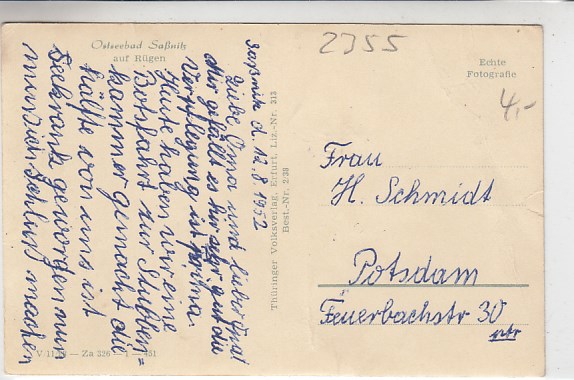 Ostseebad Saßnitz
auf Rügen
2355
Echte
Fotografie
4,-
Saßnitz d. 12.8.1952
Liebe Oma und lieber
Mir gefällt es hier sehr gut die
Verpflegung ist prima.
Heute haben wir eine
Botsfahrt zur Stubben=
kammer gemacht die
hälfte von uns ist
Seekrank geworden nun
muß ich Schluß machen
Thüringer Volksverlag, Erfurt, Liz.-Nr. 313
Best.-Nr. 2/39
Frau
H. Schmidt
Potsdam
Feuerbachstr 30
ptr
V 11/9 — Za 326 — 1 — 451